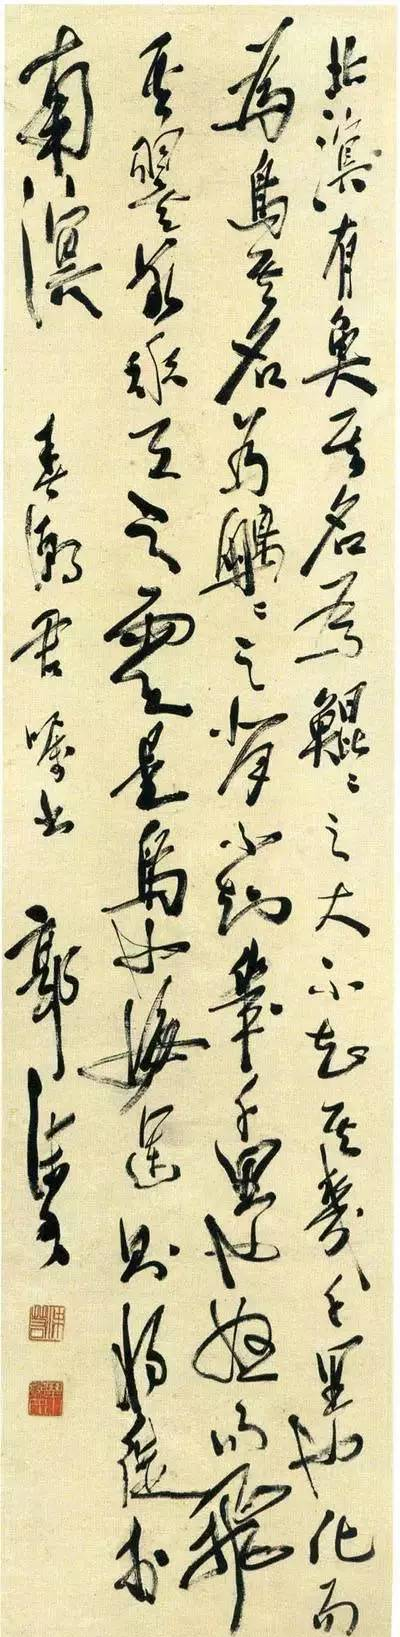 北溟有魚其名為鯤〻之大不知其幾千里也化而
為鳥其名為鵬〻之背不知幾千里也怒而飛
其翼若垂天之雲是鳥也海運則將徙於
南溟
春潮君囑書 郭沫若